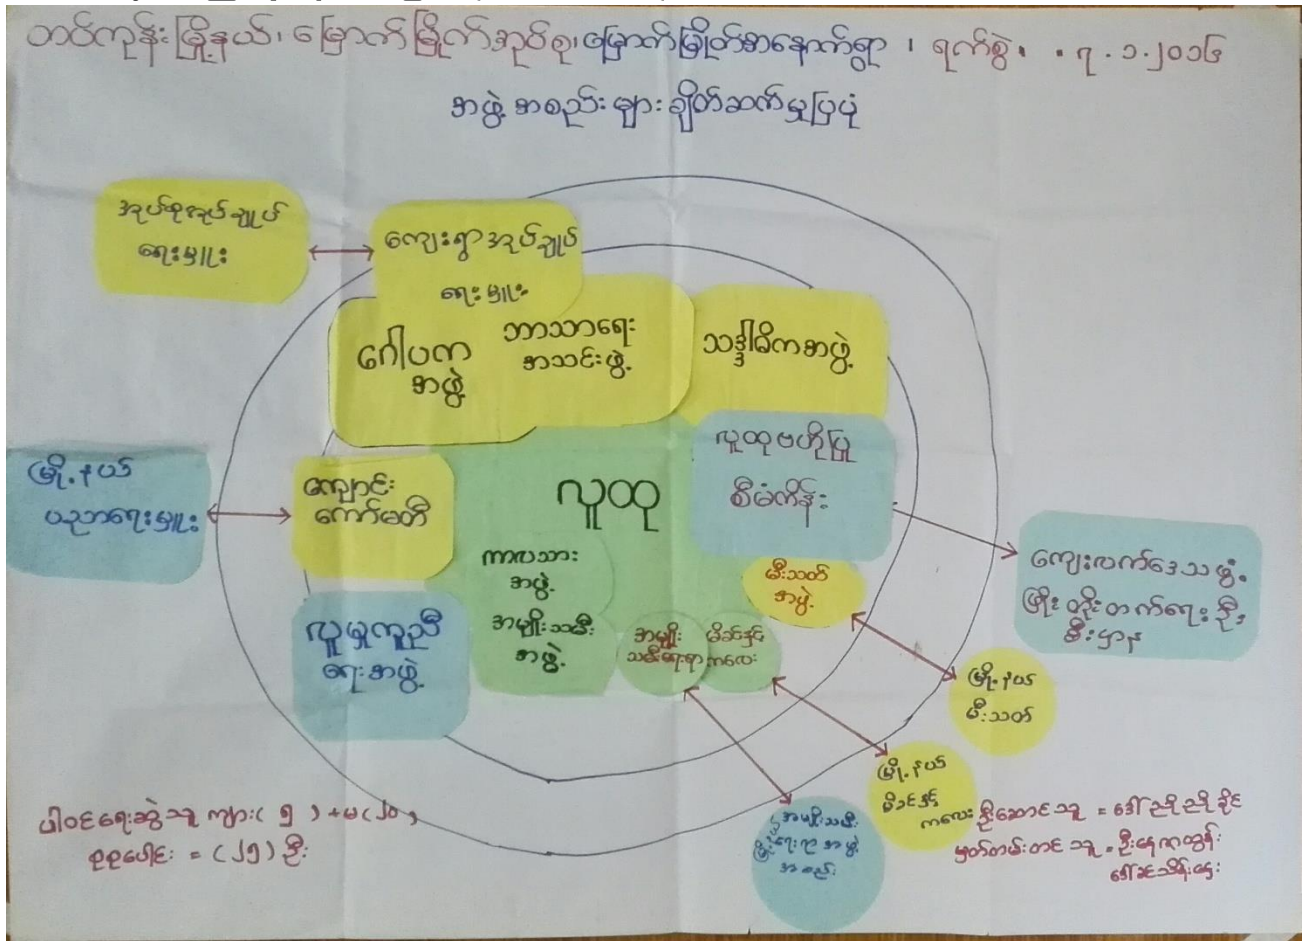 တပ်ကုန်းမြို့နယ်၊ မြောက်မြိုက်အုပ်စု၊ မြောက်မြိုတ်အနောက်ရွာ ၊ ရက်စွဲ ၊ ၇.၁.၂၀၁၆
အဖွဲ့အစည်းများ ချိတ်ဆက်မှုပြပုံ
အုပ်စုအုပ်ချုပ်
ရေးမှူး
ကျေးရွာအုပ်ချုပ်
ရေးမှူး
ဂေါပက
အဖွဲ့
ဘာသာရေး
အသင်းဖွဲ့
သဒ္ဓါဓိကအဖွဲ့
မြို့နယ်
ပညာရေးမှူး
ကျောင်း
ကော်မတီ
လူထု
လူထုဗဟိုပြု
စီမံကိန်း
ကာလသား
အဖွဲ့
အမျိုးသမီး
အဖွဲ့
မီးသတ်
အဖွဲ့
လူမှုကူညီ
ရေးအဖွဲ့
အမျိုး
သမီးရေးရာ
မိခင်နှင့်
ကလေး
ကျေးလက်ဒေသဖွံ့
ဖြိုးတိုးတက်ရေးဦး
စီးဌာန
မြို့နယ်
မီးသတ်
မြို့နယ်
မိခင်နှင့်
ကလေး
အမျိုးသမီး
ရေးရာအဖွဲ့
အစည်း
ပါဝင်ရေးဆွဲသူ ကျား(၅)+မ(၂၀)
စုစုပေါင်း = (၂၅)ဦး
ဦးဆောင်သူ = ဒေါ်ညိုညိုခိုင်
မှတ်တမ်းတင်သူ = ဦးနေကထွန်း
ဒေါ်ခင်သိန်းဌေး